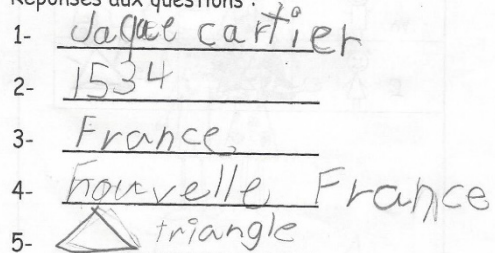 Réponses aux questions :
1- Jaque cartier
2- 1534
3- France
4- nouvelle France
5- triangle